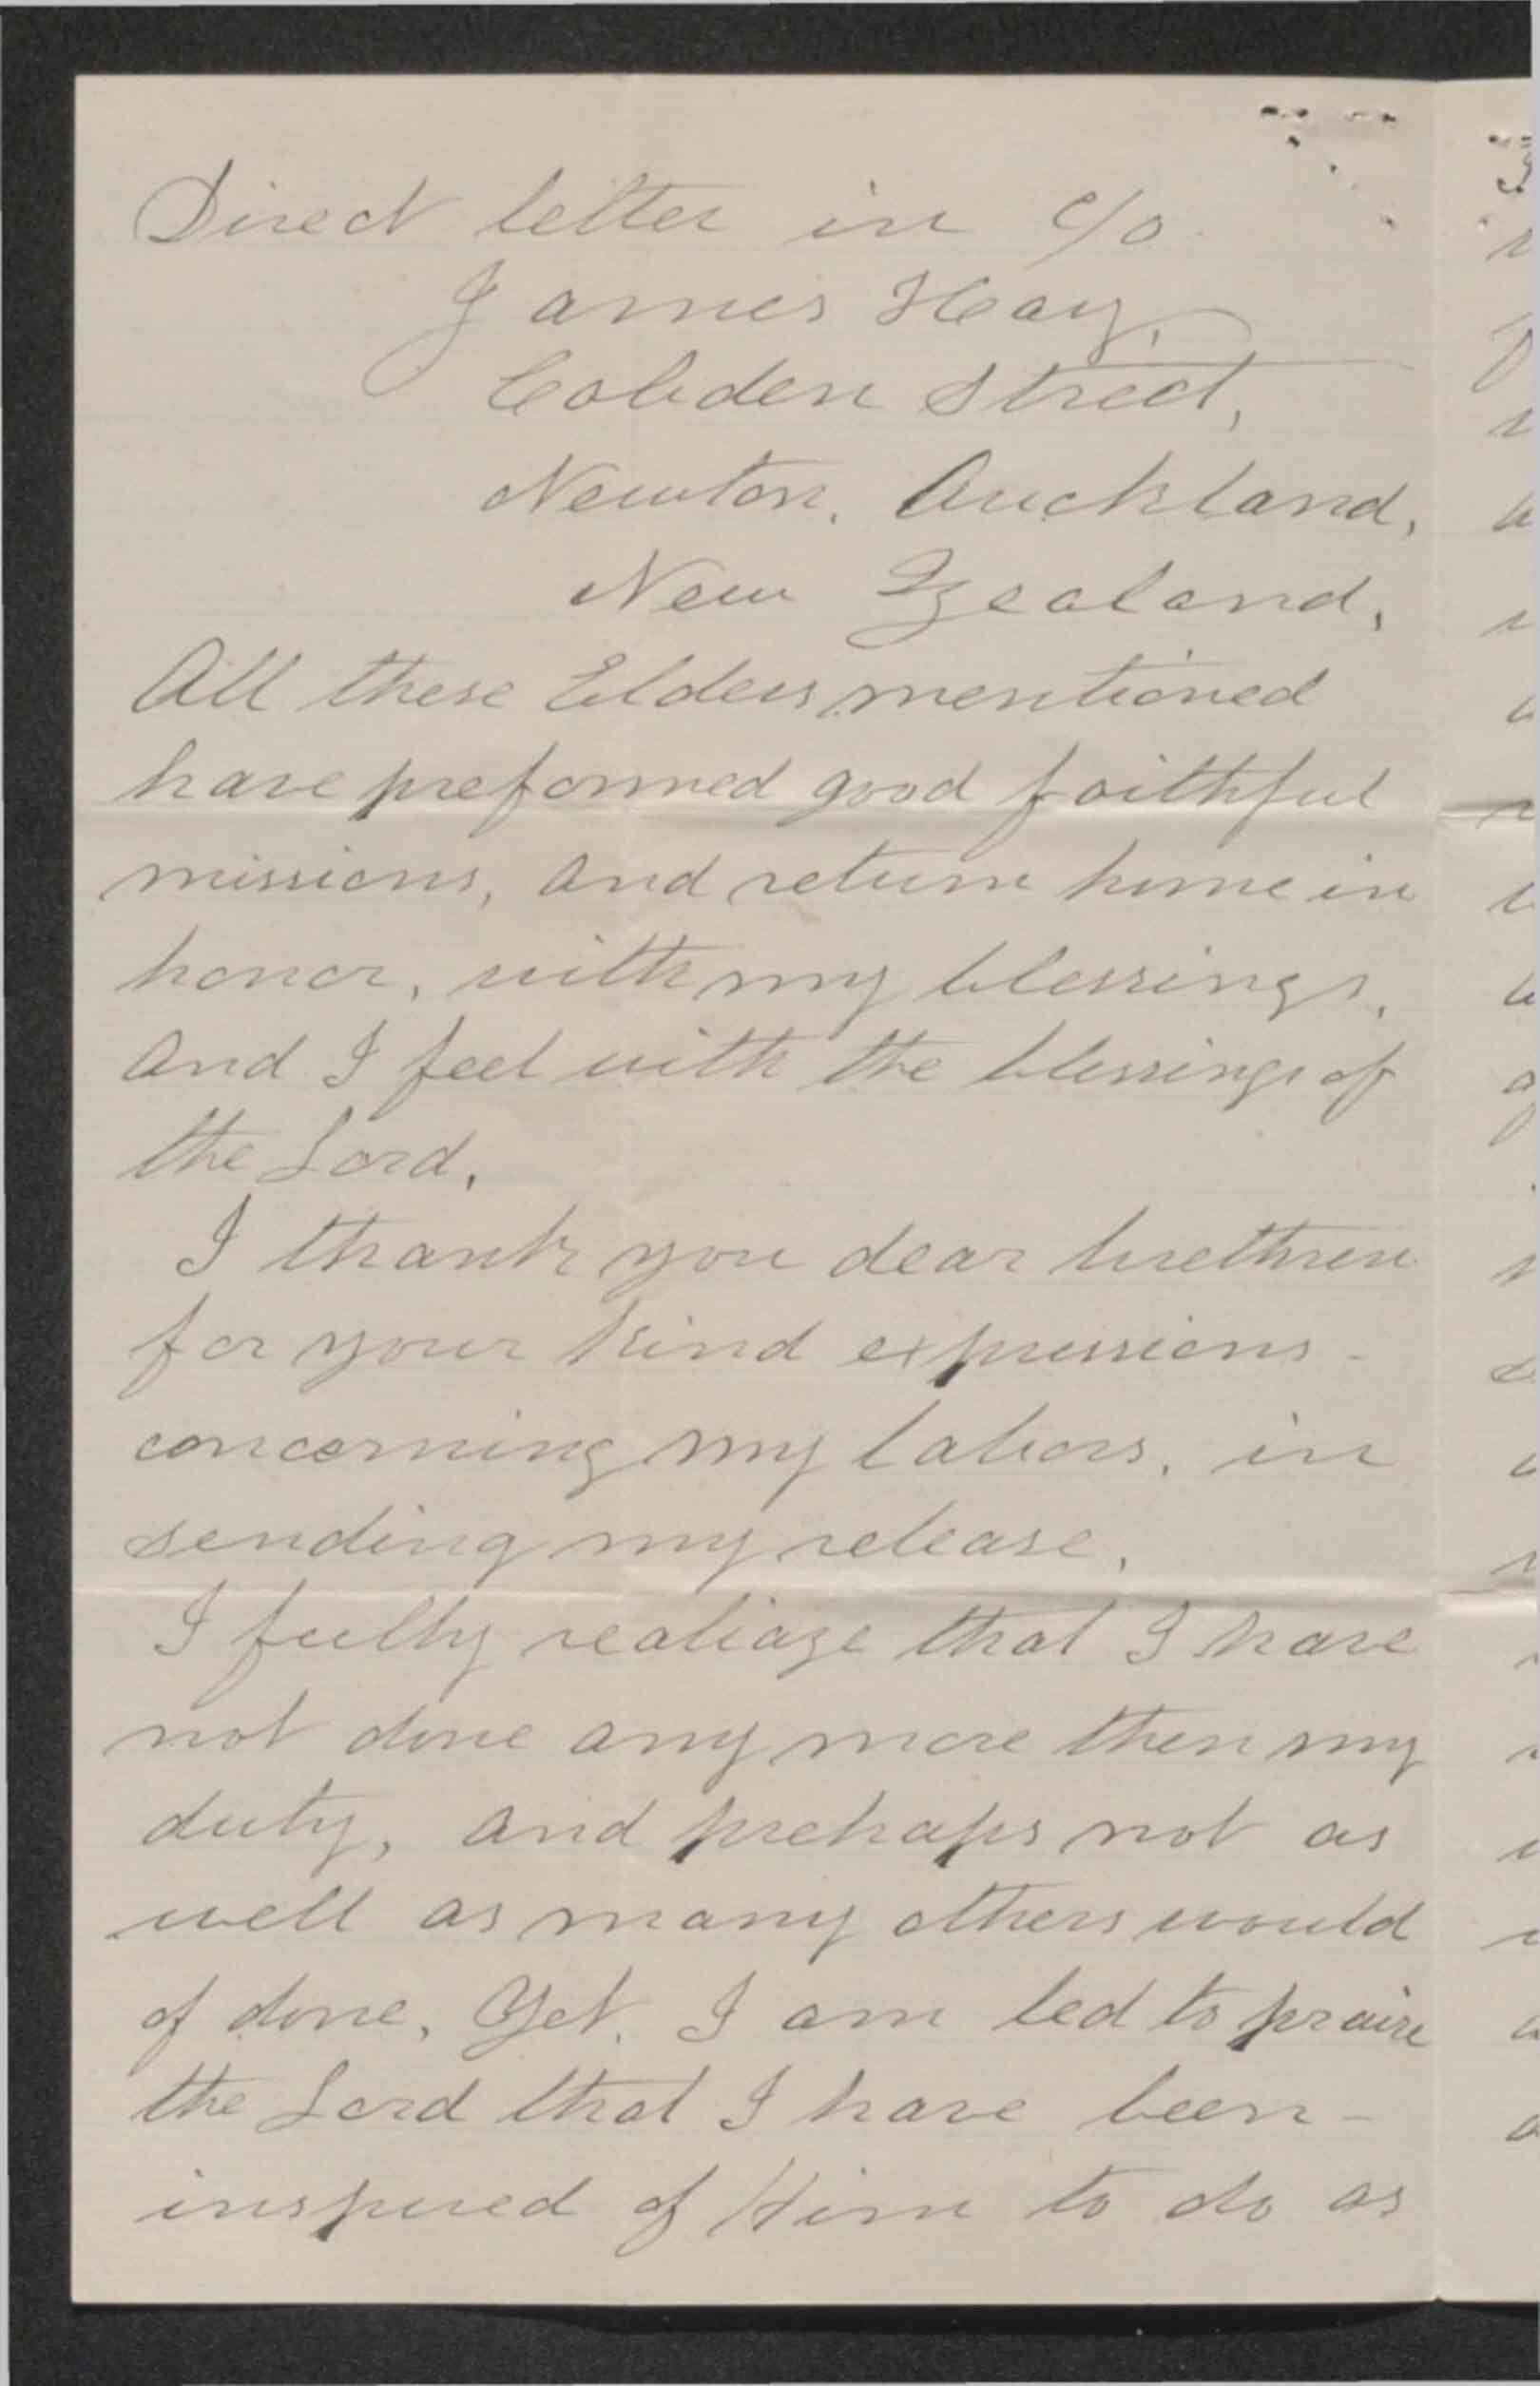 Direct letter in c/o
James Hay,
Cobden Street,
Newton, Auckland,
New Zealand,
All these Elders mentioned
have preformed good faithful
missions, and return home in
honor, with my blessings,
and I feel with the blessings of
the Lord,
I thank you dear brethren
for your kind expressions -
concerning my labors, in
sending my release,
I fully realiaze that I have
not done any more then my
duty, and prehaps not as
well as many others would
of done, Yet, I am led to praise
the Lord that I have been -
inspired of Him to do as